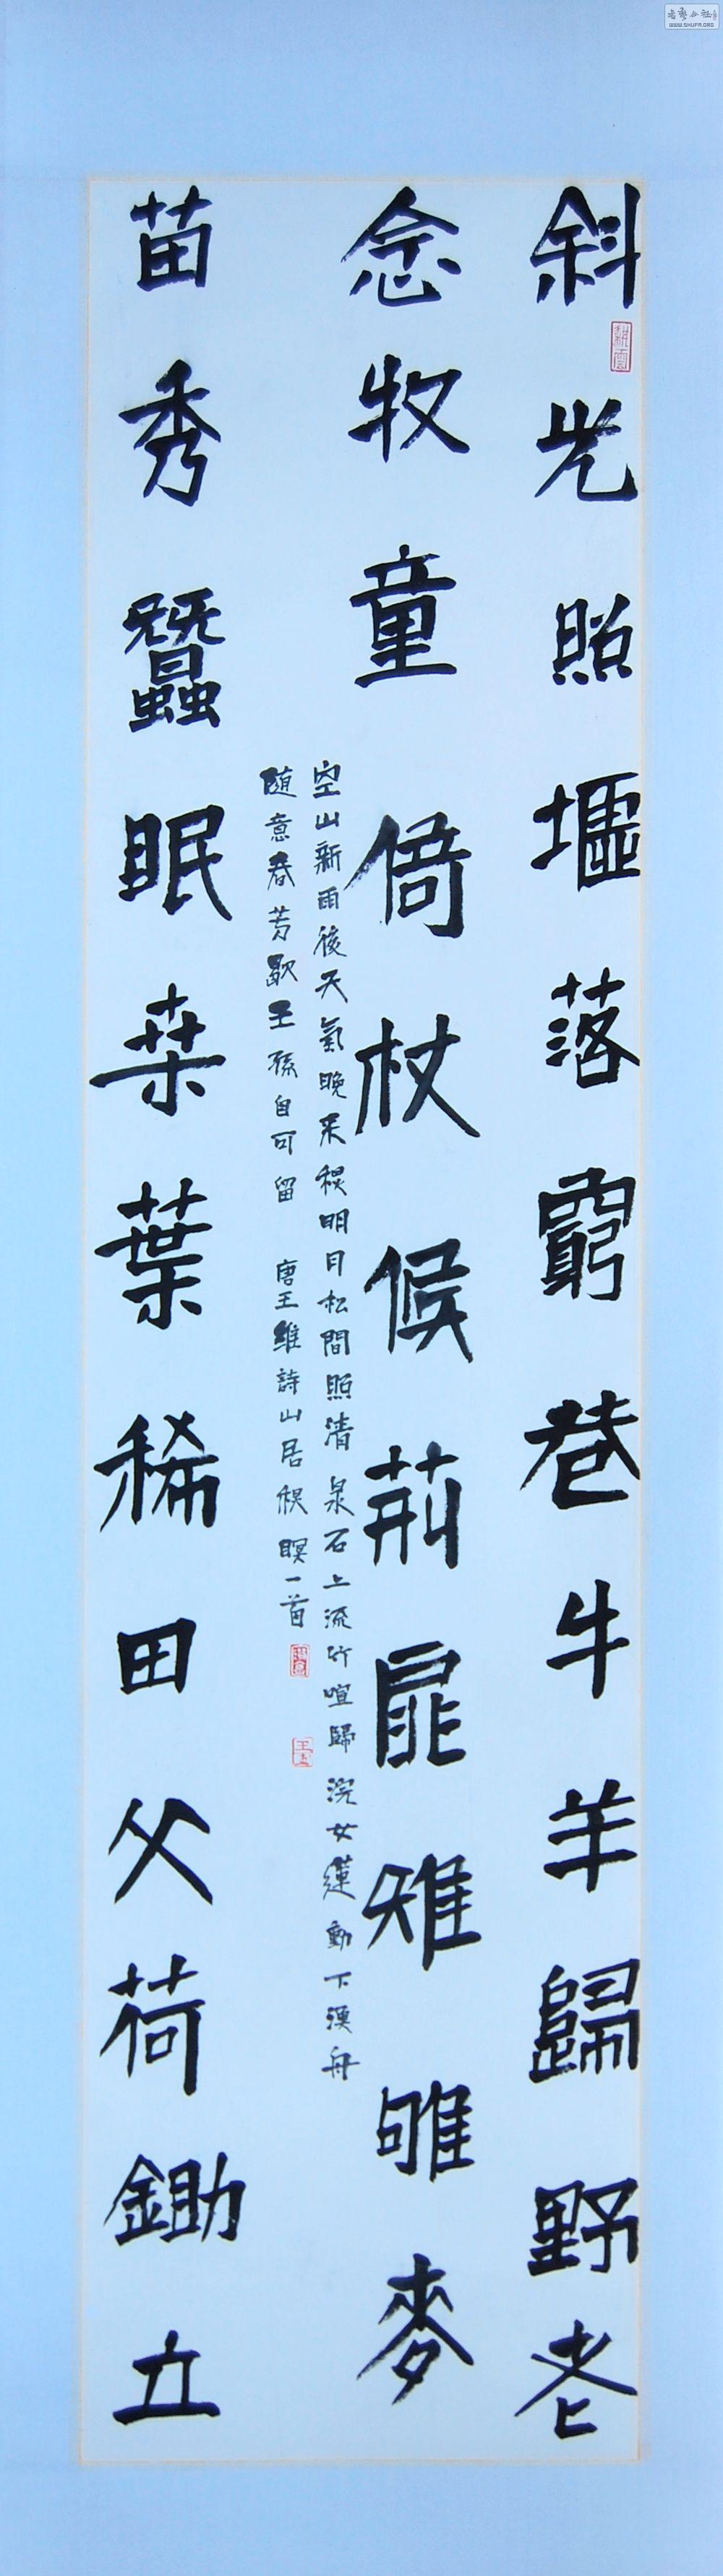 斜光照墟落窮巷牛羊歸野老
耕雲
念牧童倚杖候荊扉雉雊麥
空山新雨後天氣晚来秋明月松間照清泉石上流竹喧歸浣女蓮動下漁舟
随意春芳歇王孫自可留 唐王維詩山居秋暝一首
苗秀蠶眠桒葉稀田父荷鋤立
WWW.SHUFA.ORG